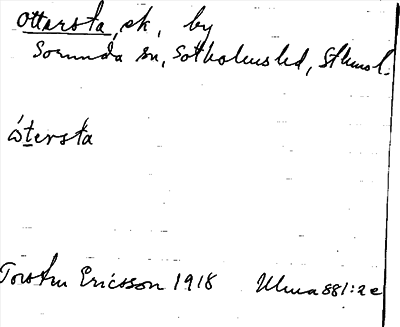 Ottarsta, sk, by
Sorunda sn, Sotholms hd, Sthms l.
ó̀tersta
Torsten Ericsson 1918 Ulma 881:2 e